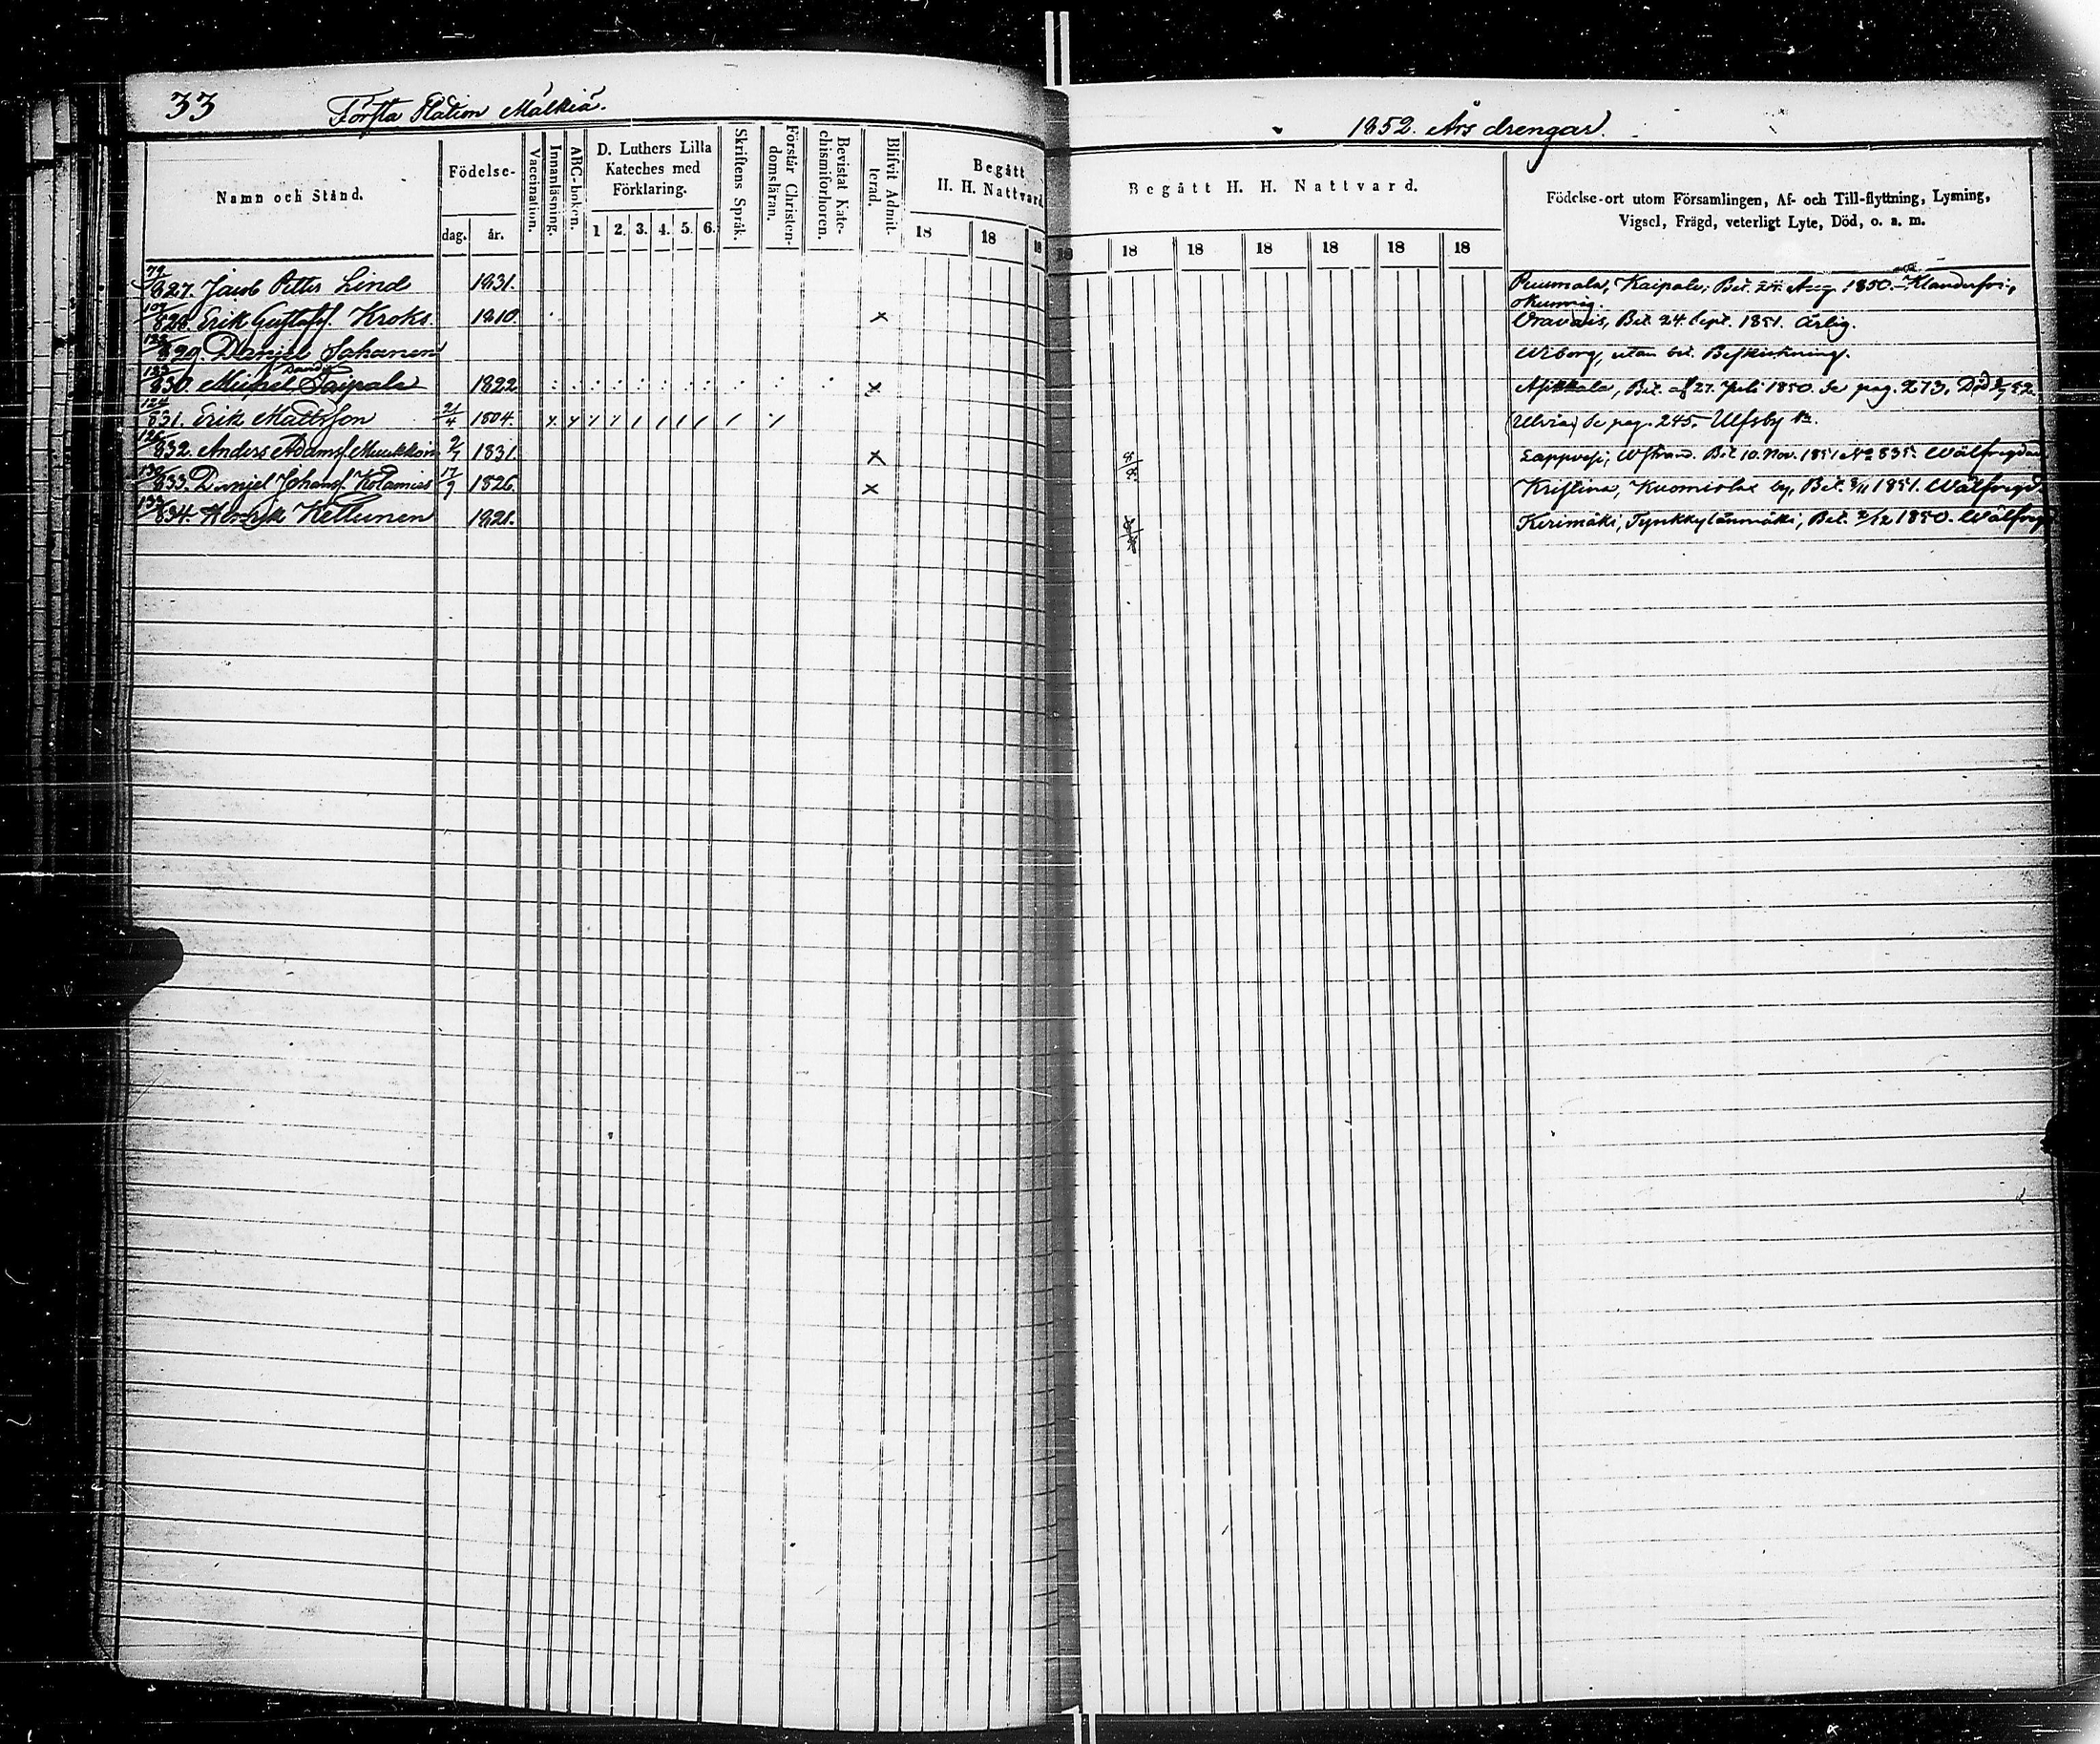 33 Första Station Mälkiä.
1852. Års drengar.
Namn och Stånd.
Födelse-
dag. år.
Vaccination.
Innanläsning.
ABC-boken.
D. Luthers Lilla
Kateches med
Förklaring.
1 2. 3. 4. 5. 6.
Skriftens Språk.
Förstår Christen-
domsläran.
Bevistat Kate-
chismiforhoren.
Blifvit Admit-
terad.
Begått
H. H. Nattvard.
18 18 18
Begått H. H. Nattvard.
18 18 18 18 18 18 18
Födelse-ort utom Församlingen, Af- och Till-flyttning, Lysning,
Vigsel, Frägd, veterligt Lyte, Död, o. s. m.
79/827. Jacob Petter Lind 1831. Puumala, Kaipale; Bet. 24 Aug 1850. Klanderfri,
okunnig.
107/828. Erik Gustafss. Kroks 1810. × Oravais, Bet. 24 Sept. 1851. Ärlig.
829. Daniel Sahanen Wiborg, utan bet. Beskrifning.
830. Michel Saipale 1822 × Asikkala, Bet. af 27. Juli 1850. Se pag. 273. Död
124/831. Erik Mattsson 21/4 1804. (Ulvia) Se pag. 245. Ulfsby
832. Anders Adamss. 2/7 1831. × Lappvesi, Wstrand. Bet 10. Nov. 1851 No 835. Wälfregdad
833. Daniel Johanss. 17/9 1826. × Kristina, by, Bet. 1851. Wälfregd.
133/834. Henrik Kellunen 1821. Kerimäki, Tynkkylänmäki, Bet. 2/12 1850. Wälfregd